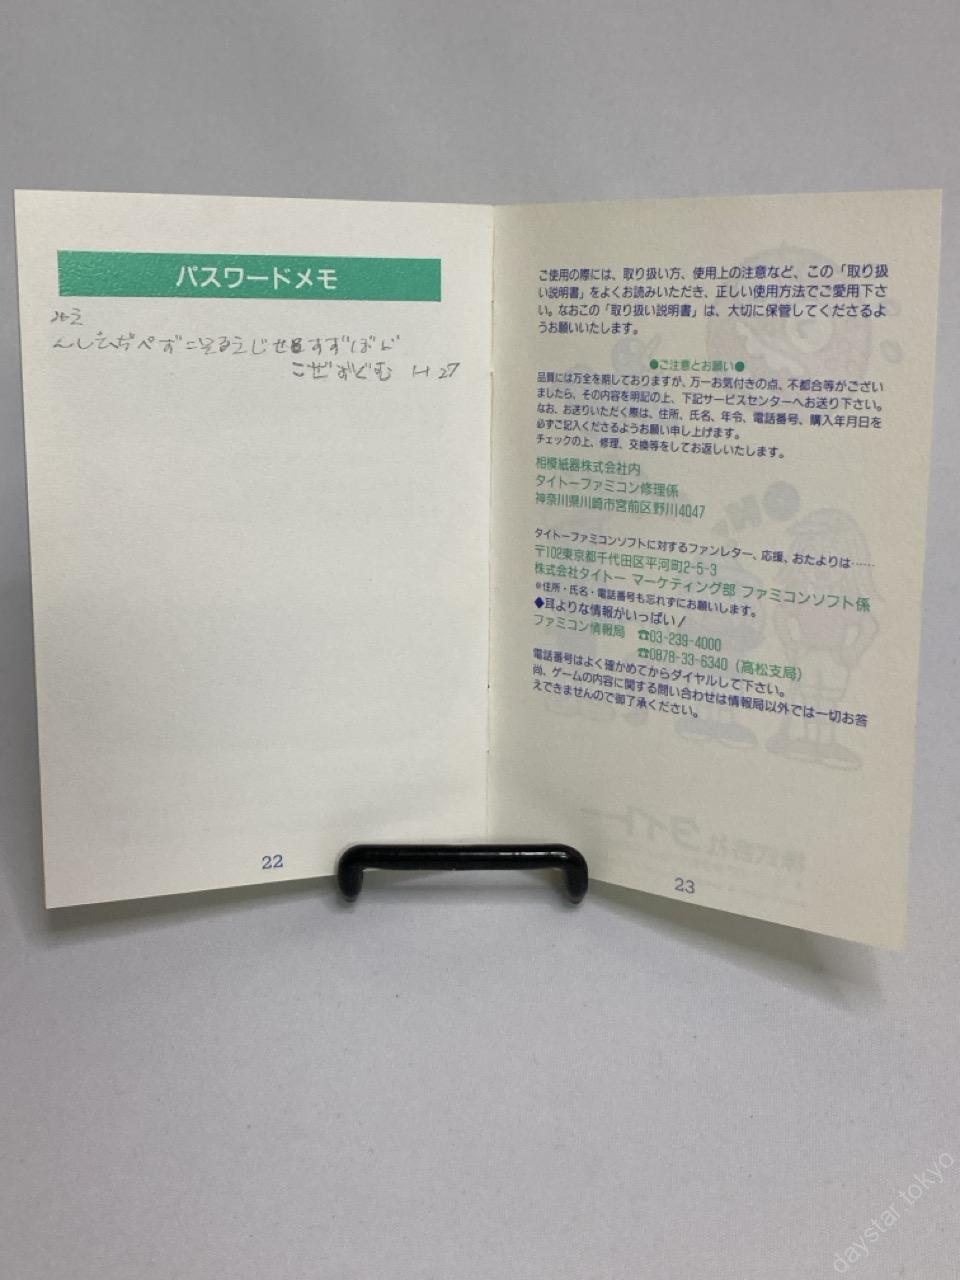 パスワードメモ
22
ご使用の際には、取り扱い方、使用上の注意など、この「取り扱
い説明書」をよくお読みいただき、正しい使用方法でご愛用下さ
い。なおこの「取り扱い説明書」は、大切に保管してくださるよ
うお願いいたします。
●ご注意とお願い●
品質には万全を期しておりますが、万一お気付きの点、不都合等がござい
ましたら、その内容を明記の上、下記サービスセンターへお送り下さい。
なお、お送りいただく際は、住所、氏名、年令、電話番号、購入年月日を
必ずご記入くださるようお願い申し上げます。
チェックの上、修理、交換等をしてお返しいたします。
相模紙器株式会社内
タイトーファミコン修理係
神奈川県川崎市宮前区野川4047
タイトーファミコンソフトに対するファンレター、応援、おたよりは……
〒102東京都千代田区平河町2-5-3
株式会社タイトー マーケティング部 ファミコンソフト係
※住所・氏名・電話番号も忘れずにお願いします。
◆耳よりな情報がいっぱい!
ファミコン情報局 ☎03-239-4000
☎0878-33-6340（高松支局）
電話番号はよく確かめてからダイヤルして下さい。
尚、ゲームの内容に関する問い合わせは情報局以外では一切お答
えできませんので御了承ください。
23
daystar tokyo